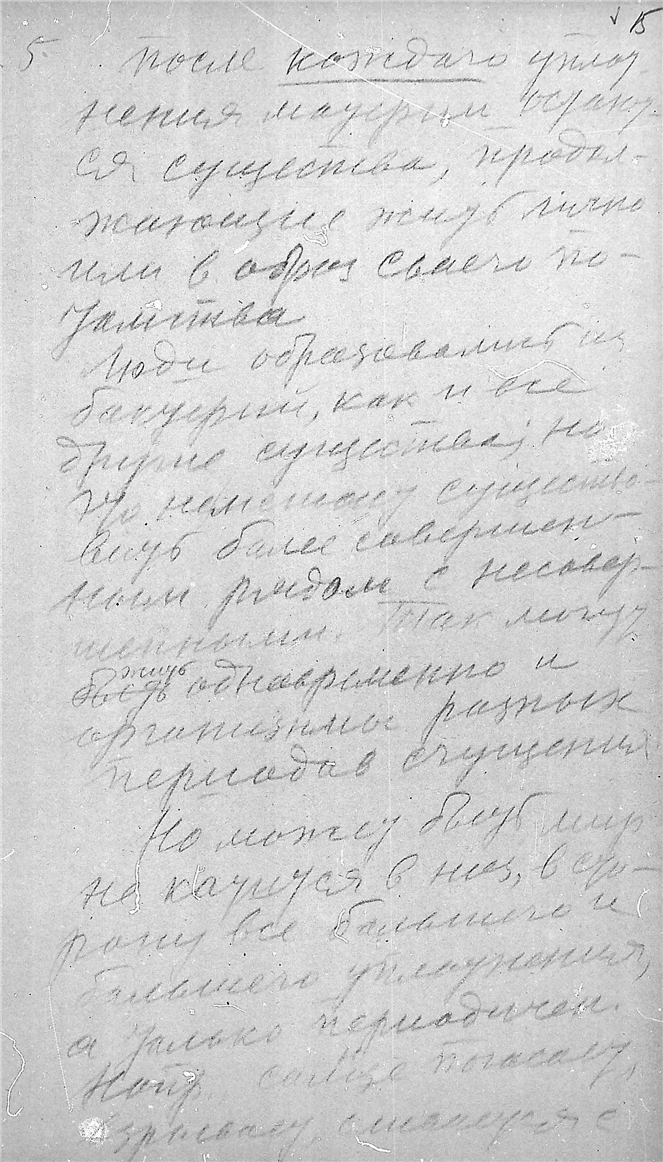 15
5. После каждаго уплот-
нения материи остают-
ся существа, продол-
жающие жить лично
или в образ своего по-
томства
Люди образовались из
бактерий, как и все
другие существа; но
это не мешает существо-
вать более совершен-
ным рядом с несовер-
шенными. Так могут
жить
быть одновременно и
организмы разных
периодов сгущения
Но может быть мир
не катится в низ, в сто-
рону все большего и
большего уплотнения,
а только периодичен.
Напр. солнце погасает,
взрывает, сливается с